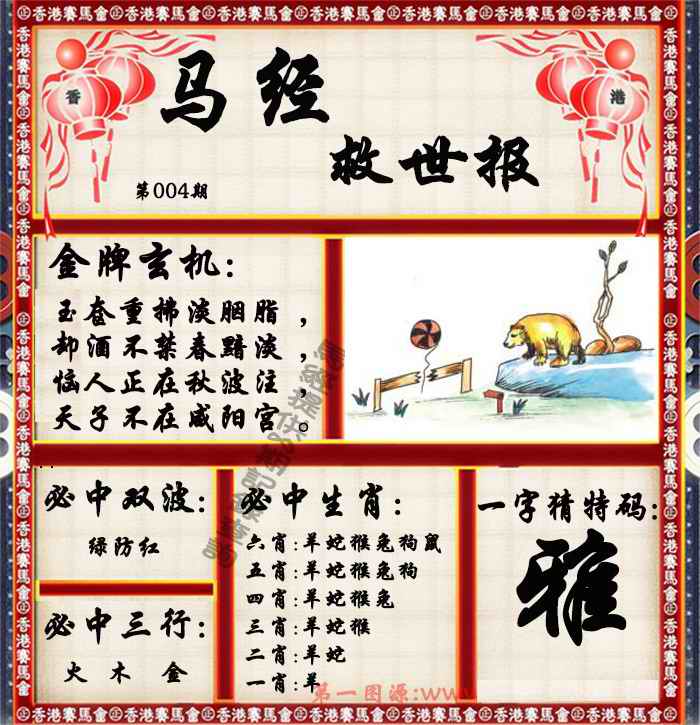 香港賽馬會
香
港
马经
救世报
第004期
金牌玄机：
玉奁重拂淡胭脂，
却酒不禁春黯淡，
恼人正在秋波注，
天子不在咸阳宫。
必中双波：
绿防红
必中三行：
火 木 金
必中生肖：
六肖：羊蛇猴兔狗鼠
五肖：羊蛇猴兔狗
四肖：羊蛇猴兔
三肖：羊蛇猴
二肖：羊蛇
一肖：羊
第一图源：www
一字猜特码：
雅